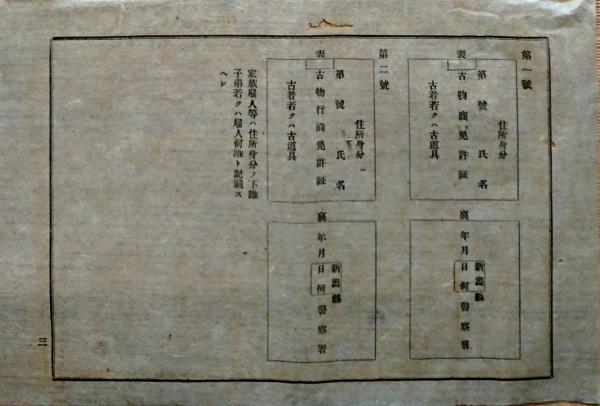 第一號
表
住所身分
第號 氏名
古物商免許証
古着若クハ古道具
裏
新潟縣
年月日何警察署
第二號
表
住所身分
第號 氏名
古物行商免許証
古着若クハ古道具
裏
新潟縣
年月日何警察署
家族雇人等ハ住所身分ノ下誰
子弟若クハ雇人何誰ト記載ス
ヘシ
三